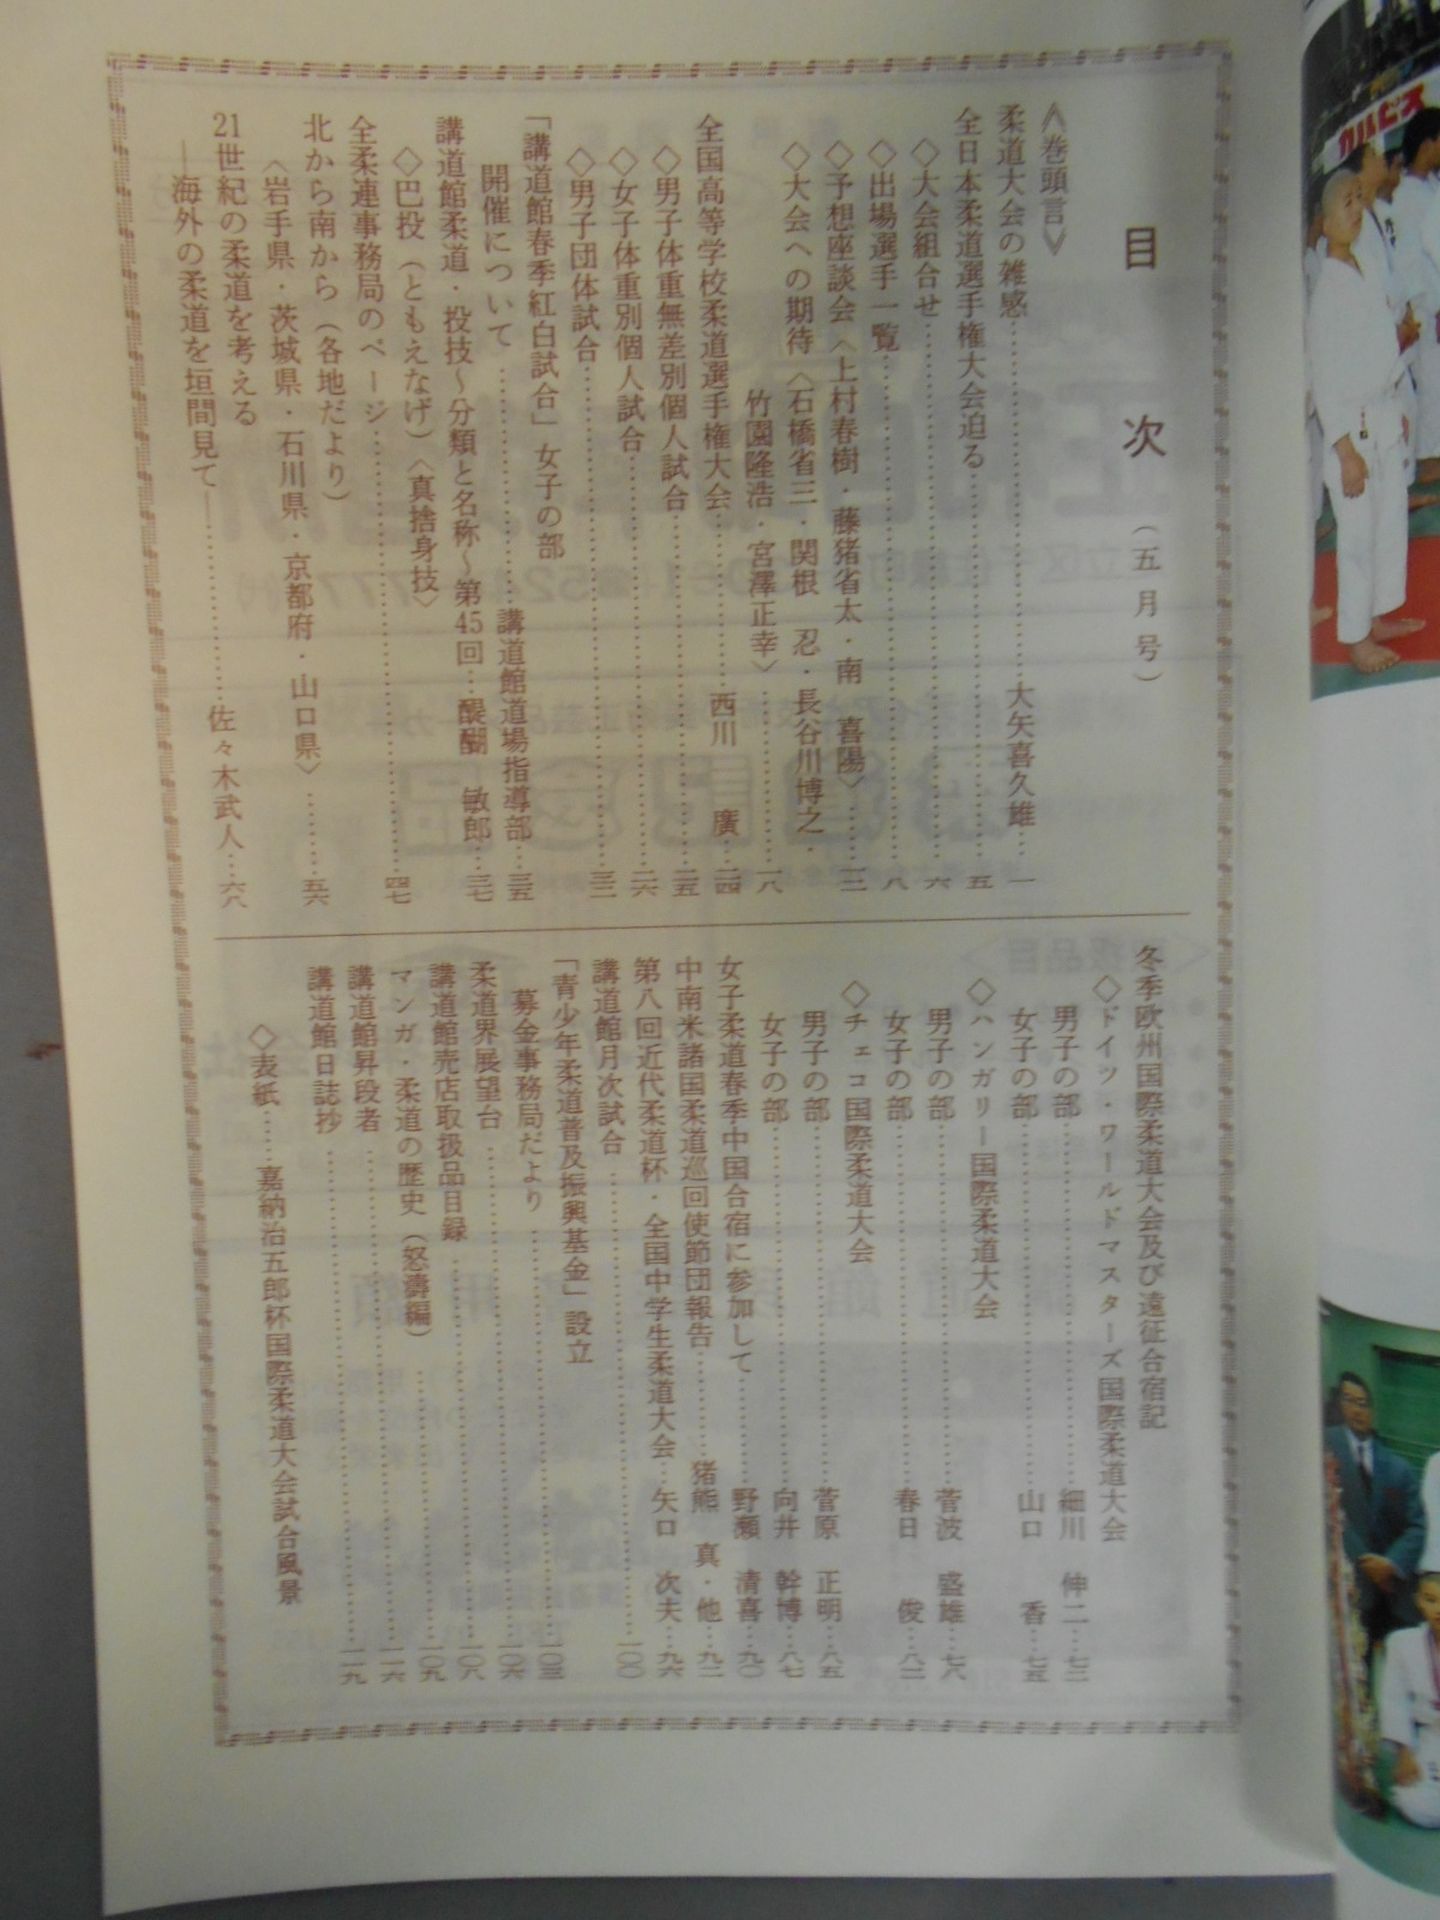 目次（五月号）
《巻頭言》
柔道大会の雑感……大矢喜久雄…一
全日本柔道選手権大会迫る……五
◇大会組合せ……六
◇出場選手一覧……八
◇予想座談会〈上村春樹・藤猪省太・南　喜陽〉……一二
◇大会への期待〈石橋省三・関根　忍・長谷川博之・
竹園隆浩・宮澤正幸〉……一八
全国高等学校柔道選手権大会……西川　廣…二四
◇男子体重無差別個人試合……二五
◇女子体重別個人試合……二六
◇男子団体試合……三二
「講道館春季紅白試合」女子の部
開催について……講道館道場指導部…三五
講道館柔道・投技〜分類と名称〜第45回…醍醐　敏郎…三七
◇巴投（ともえなげ）〈真捨身技〉
全柔連事務局のページ……四七
北から南から（各地だより）
〈岩手県・茨城県・石川県・京都府・山口県〉……五六
21世紀の柔道を考える
―海外の柔道を垣間見て―……佐々木武人…六八
冬季欧州国際柔道大会及び遠征合宿記
◇ドイツ・ワールドマスターズ国際柔道大会
男子の部……細川　伸二…七二
女子の部……山口　香…七五
◇ハンガリー国際柔道大会
男子の部……菅波　盛雄…七八
女子の部……春日　俊…八二
◇チェコ国際柔道大会
男子の部……菅原　正明…八五
女子の部……向井　幹博…八七
女子柔道春季中国合宿に参加して……野瀬　清喜…九〇
中南米諸国柔道巡回使節団報告……猪熊　真・他…九二
第八回近代柔道杯・全国中学生柔道大会…矢口　次夫…九六
講道館月次試合……一〇〇
「青少年柔道普及振興基金」設立
募金事務局だより……一〇三
柔道界展望台……一〇六
講道館売店取扱品目録……一〇八
マンガ・柔道の歴史（怒濤編）……一〇九
講道館昇段者……一一六
講道館日誌抄……一一九
◇表紙……嘉納治五郎杯国際柔道大会試合風景
カルピス